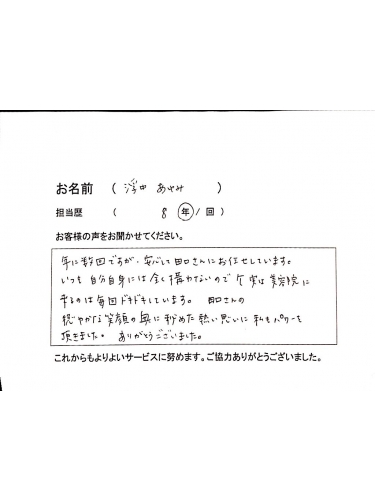 お名前 ( 浮中 あゆみ )
担当歴 ( 8 年 / 回 )
お客様の声をお聞かせてください。
年に数回ですが、安心して田口さんにお任せしています。
いつも自分自身には全く構わないので 実は美容院に
来るのは毎回ドキドキしています。 田口さんの
穏やかな笑顔の奥に秘めた熱い思いに私もパワーを
頂きました。 ありがとうございました。
これからもよりよいサービスに努めます。ご協力ありがとうございました。